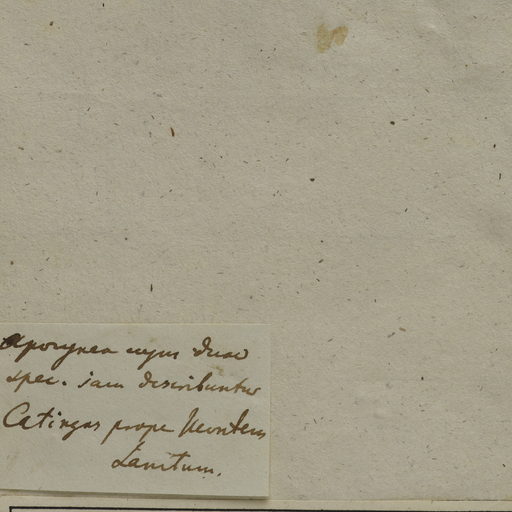 Apocynea cujus duae
spec. jam describuntur
Catingas prope Montem
Sanctum.